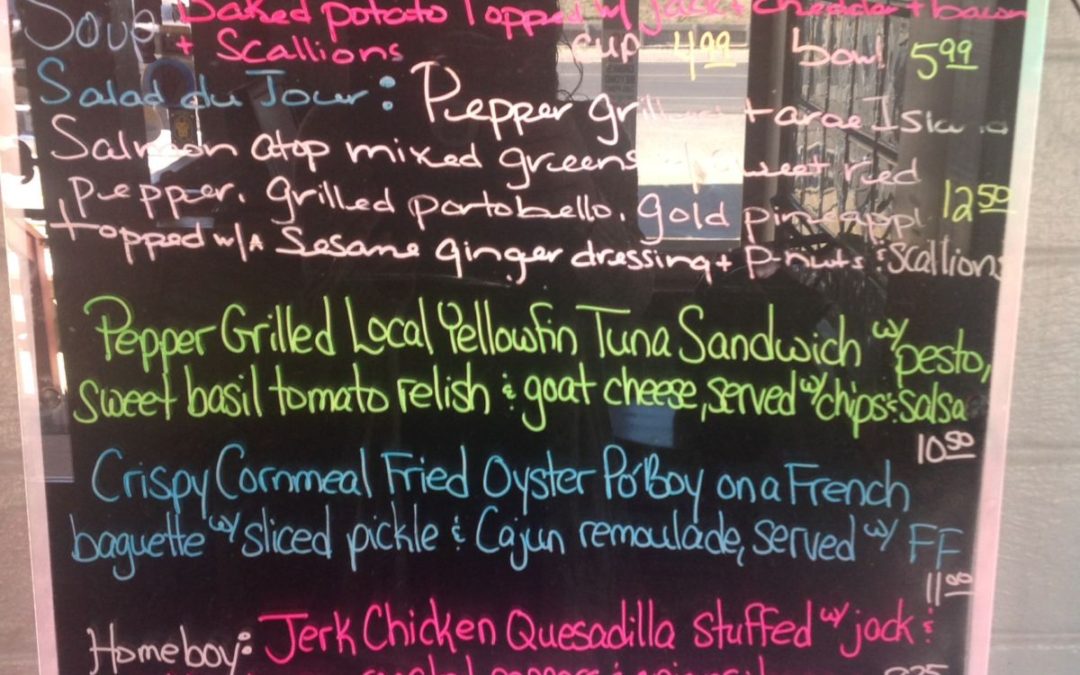 Soup Baked potato Topped w/ jack + cheddar + bacon
+ Scallions cup 4.99 bowl 5.99
Salad du Jour: Pepper
Salmon atop mixed greens
pepper, grilled portobello, gold 12.50
topped w/ a Sesame ginger dressing + p-nuts & scallions
Pepper Grilled Local Yellowfin Tuna Sandwich w/ pesto,
sweet basil tomato relish & goat cheese, served w/ chips & salsa
10.50
Crispy Cornmeal Fried Oyster Po'Boy on a French
baguette w/ sliced pickle & Cajun remoulade, served w/ FF
11.00
Homeboy: Jerk Chicken Quesadilla stuffed w/ jack &